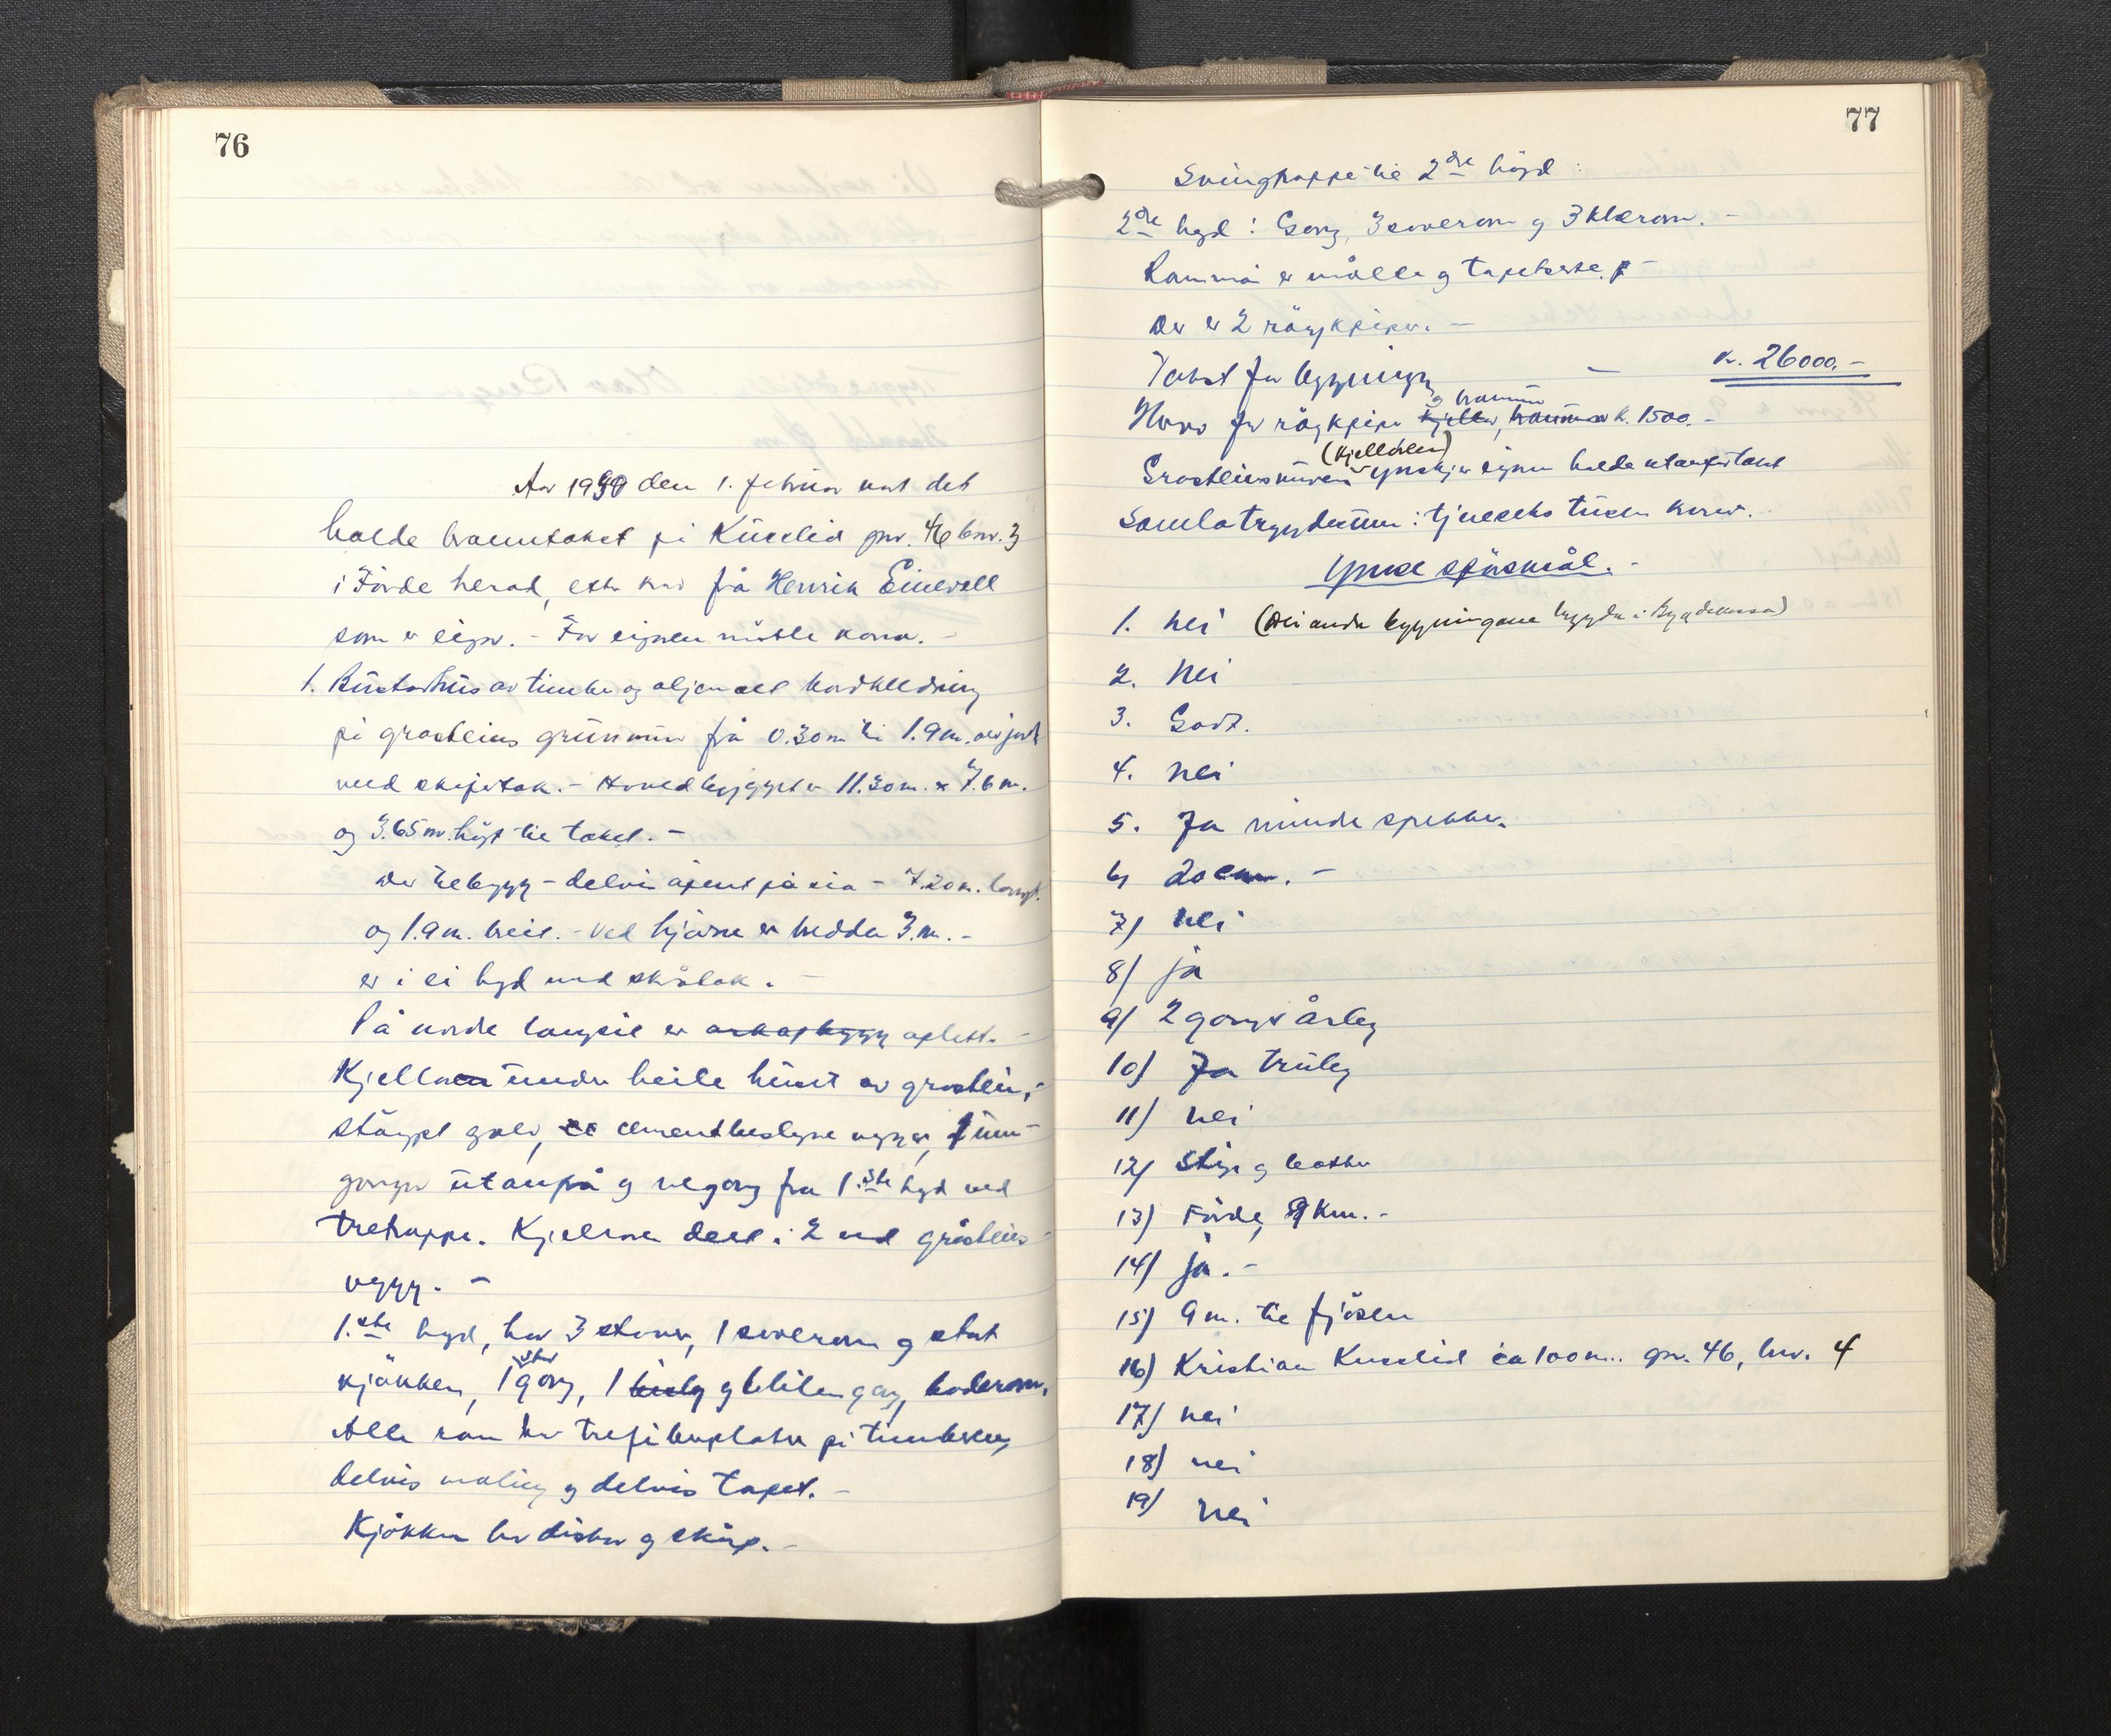 76
Aar 1950 den 1. februar vart det
halde branntakst på Kusslid gnr. 46 bnr. 3
i Förde herad, etter krav frå Henrik Einevoll
som er eigar. - For eigaren mötte kona. -
1. Bustadhus av timber og oljemalt bordkledning
på grasteins grunnmur frå 0.30 m til 1.9 m. over jord
med skifertak. - Hovedbygget er 11.30 m. x 7.6 m.
og 3.65 m. högt til taket. -
der tilbygg - delvis åpent på sia - 7.20 m. langt
og 1.9 m. breit. - Ved hjörne er bredda 3. m. -
er i ei högd med skråtak. -
På nordre langsie er arkopbygg oplett. -
Kjellaren under heile huset av gråstein, -
stöypt golv, cementbeslegne vegger, inn-
ganger utanpå og nedgang fra 1.ste högd ved
tretrappe. Kjellaren delt i 2 med gråsteins
vegg. -
1.ste högd, har 3 stover, 1 soverom og stort
kjökken, 1 stor gang, 1 og liten gang, baderom.
Alle rom har trefiberplater på timberen,
delvis maling og delvis tapet. -
Kjökken har disker og skåp. -
77
Svingtrappe til 2dre högd
2dre högd: Gang, 3 soverom og 3 klærom. -
Romma er målte og tapetserte. -
Der er 2 röykpiper. -
Takst for bygningen - Kr. 26000.-
og brannmur
Herav for röykpiper kjeller, brannmur kr. 1500. -
(kjelleren)
Grasteinsmuren ynskjer eigaren halde utanfor takst
Samla trygdesum: tjueseks tusen kroner.
Ymse spörsmål. -
1. nei (Dei andre bygningane trygda i Bygdekassa)
2. Nei
3. Godt.
4. nei
5. Ja mindre sprekker.
6) 20 cm. -
7) nei
8) ja
9) 2 gonger årleg
10) Ja truleg
11) nei
12) Stige og bötter
13) Förde, 9 km. -
14) ja. -
15) 9 m. til fjösen
16) Kristian Kusslid ca 100 m.. gnr. 46, bnr. 4
17) nei
18) nei
19) nei